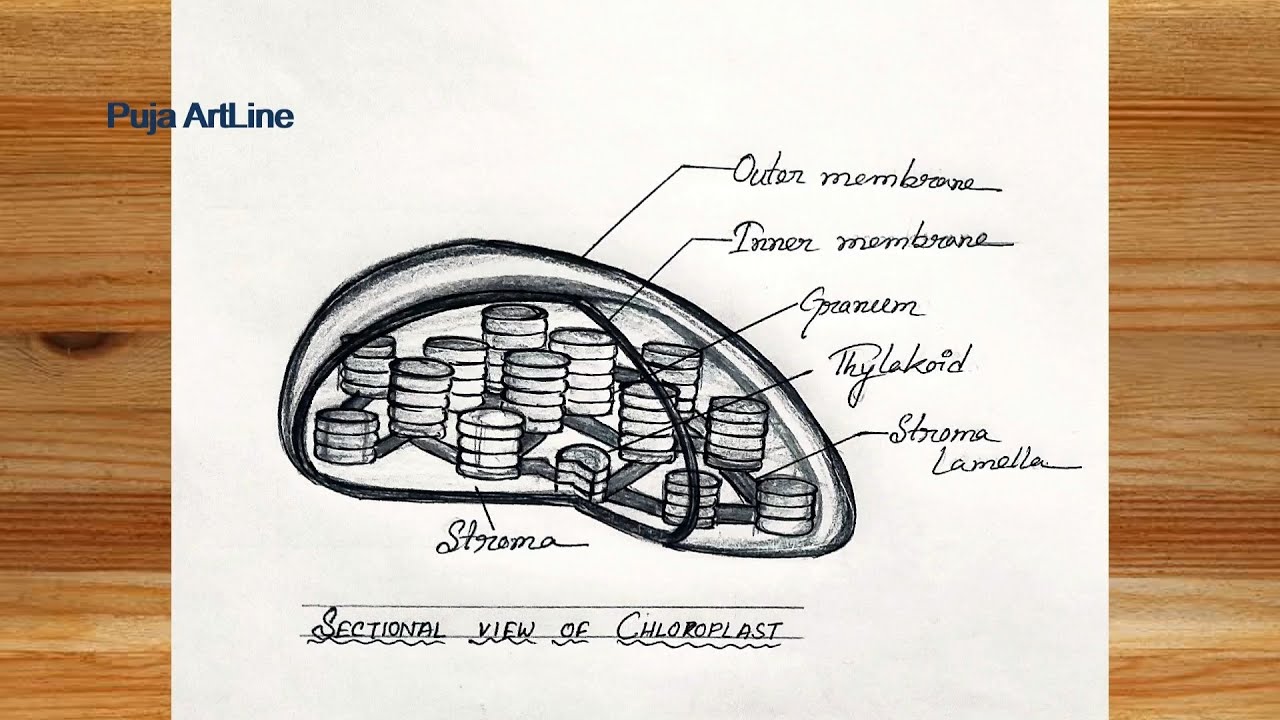 Puja ArtLine
Outer membrane
Inner membrane
Granum
Thylakoid
Stroma
Lamella
Stroma
SECTIONAL VIEW OF CHLOROPLAST